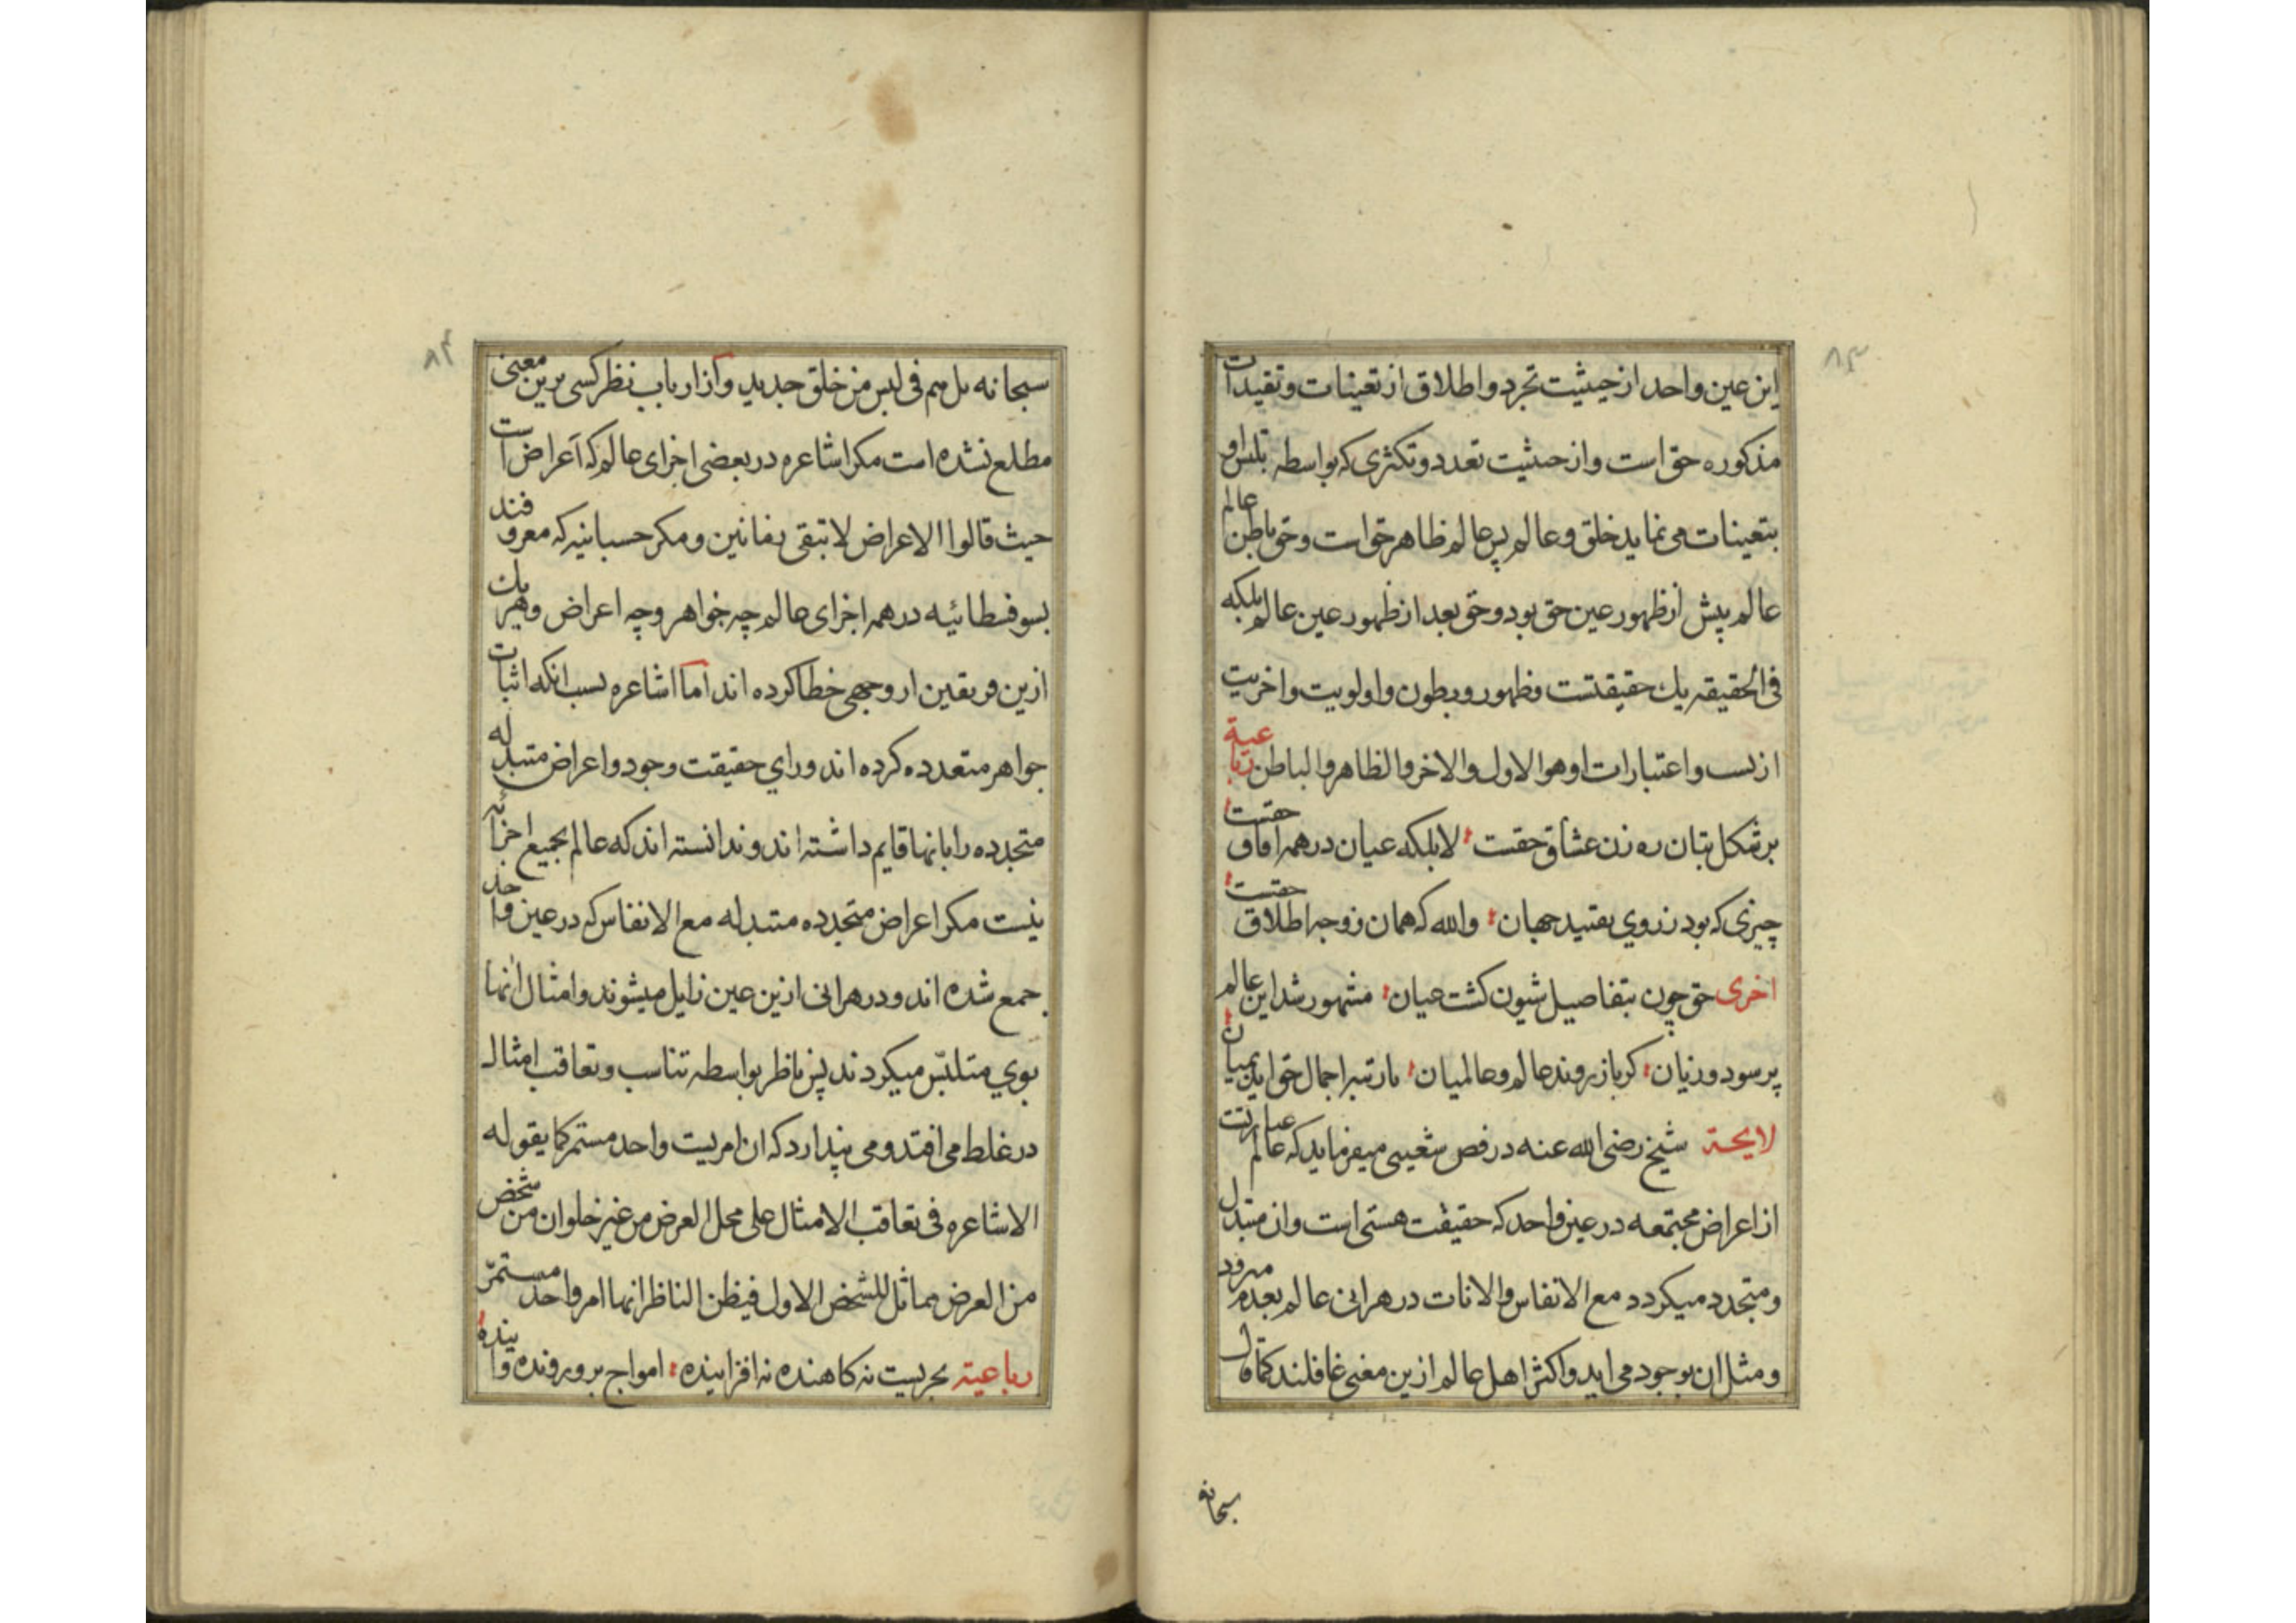 ۸۳
این عین واحد از حیثیت تجرد و اطلاق از تعینات و تقیدات
مذکوره حق است و از حیثیت تعدد و تکثری که بواسطه تلبس او
بتعینات می نماید خلق و عالم پس عالم ظاهر حق است و حق باطن عالم
عالم پیش از ظهور عین حق بود و حق بعد از ظهور عین عالم بلکه
فی الحقیقه یك حقیقتست و ظهور و بطون و اولویت و اخریت
از نسب و اعتبارات او هو الاول والاخر والظاهر والباطن رباعیة
بر شکل بتان ره زن عشاق حقست لا بلکه عیان در همه افاق حقست
چیزی که بود ز روی تقیید جهان والله که همان ز وجه اطلاق حقست
اخری حق چون بتفاصیل شیون کشت عیان مشهور شد این عالم
پر سود و زیان کر باز روند عالم و عالمیان با رتبه اجمال حق ایذ بمیان
لایحة شیخ رضی الله عنه در فص شعیبی میفرماید که عالم عبارتست
از اعراض مجتمعه در عین واحد که حقیقت هستی است و ان متبدل
و متجدد میکردد مع الانفاس والانات در هر انی عالم بعدم میرود
و مثل ان بوجود می اید و اکثر اهل عالم ازین معنی غافلند کما قال
سبحانه
۸۴
سبحانه بل هم فی لبس من خلق جدید و از ارباب نظر کسی برین معنی
مطلع نشده است مکر اشاعره در بعضی اجزای عالم که اعراض است
حیث قالوا الاعراض لا تبقی زمانین و مکر حسبانیه که معروفند
بسوفسطائیه در همه اجزای عالم چه جواهر و چه اعراض و هر یك
ازین فریقین از وجهی خطا کرده اند اما اشاعره بسبب انکه اثبات
جواهر متعدده کرده اند ورای حقیقت وجود و اعراض متبدله
متجدده را بانها قایم داشته اند و ندانسته اند که عالم بجمیع اجزائه
نیست مکر اعراض متجدده متبدله مع الانفاس که در عین واحد
جمع شده اند و در هر انی ازین عین زایل میشوند و امثال انها
بوی متلبس میکردند پس ناظر بواسطه تناسب و تعاقب امثال
در غلط می افتد و می پندارد که ان امریست واحد مستمر کما یقوله
الاشاعره فی تعاقب الامثال علی محل العرض من غیر خلو ان من شخص
من العرض مماثل للشخص الاول فیظن الناظر انها امر واحد مستمر
رباعیة بحریست نه کاهنده نه افزاینده امواج برو رونده و اینده